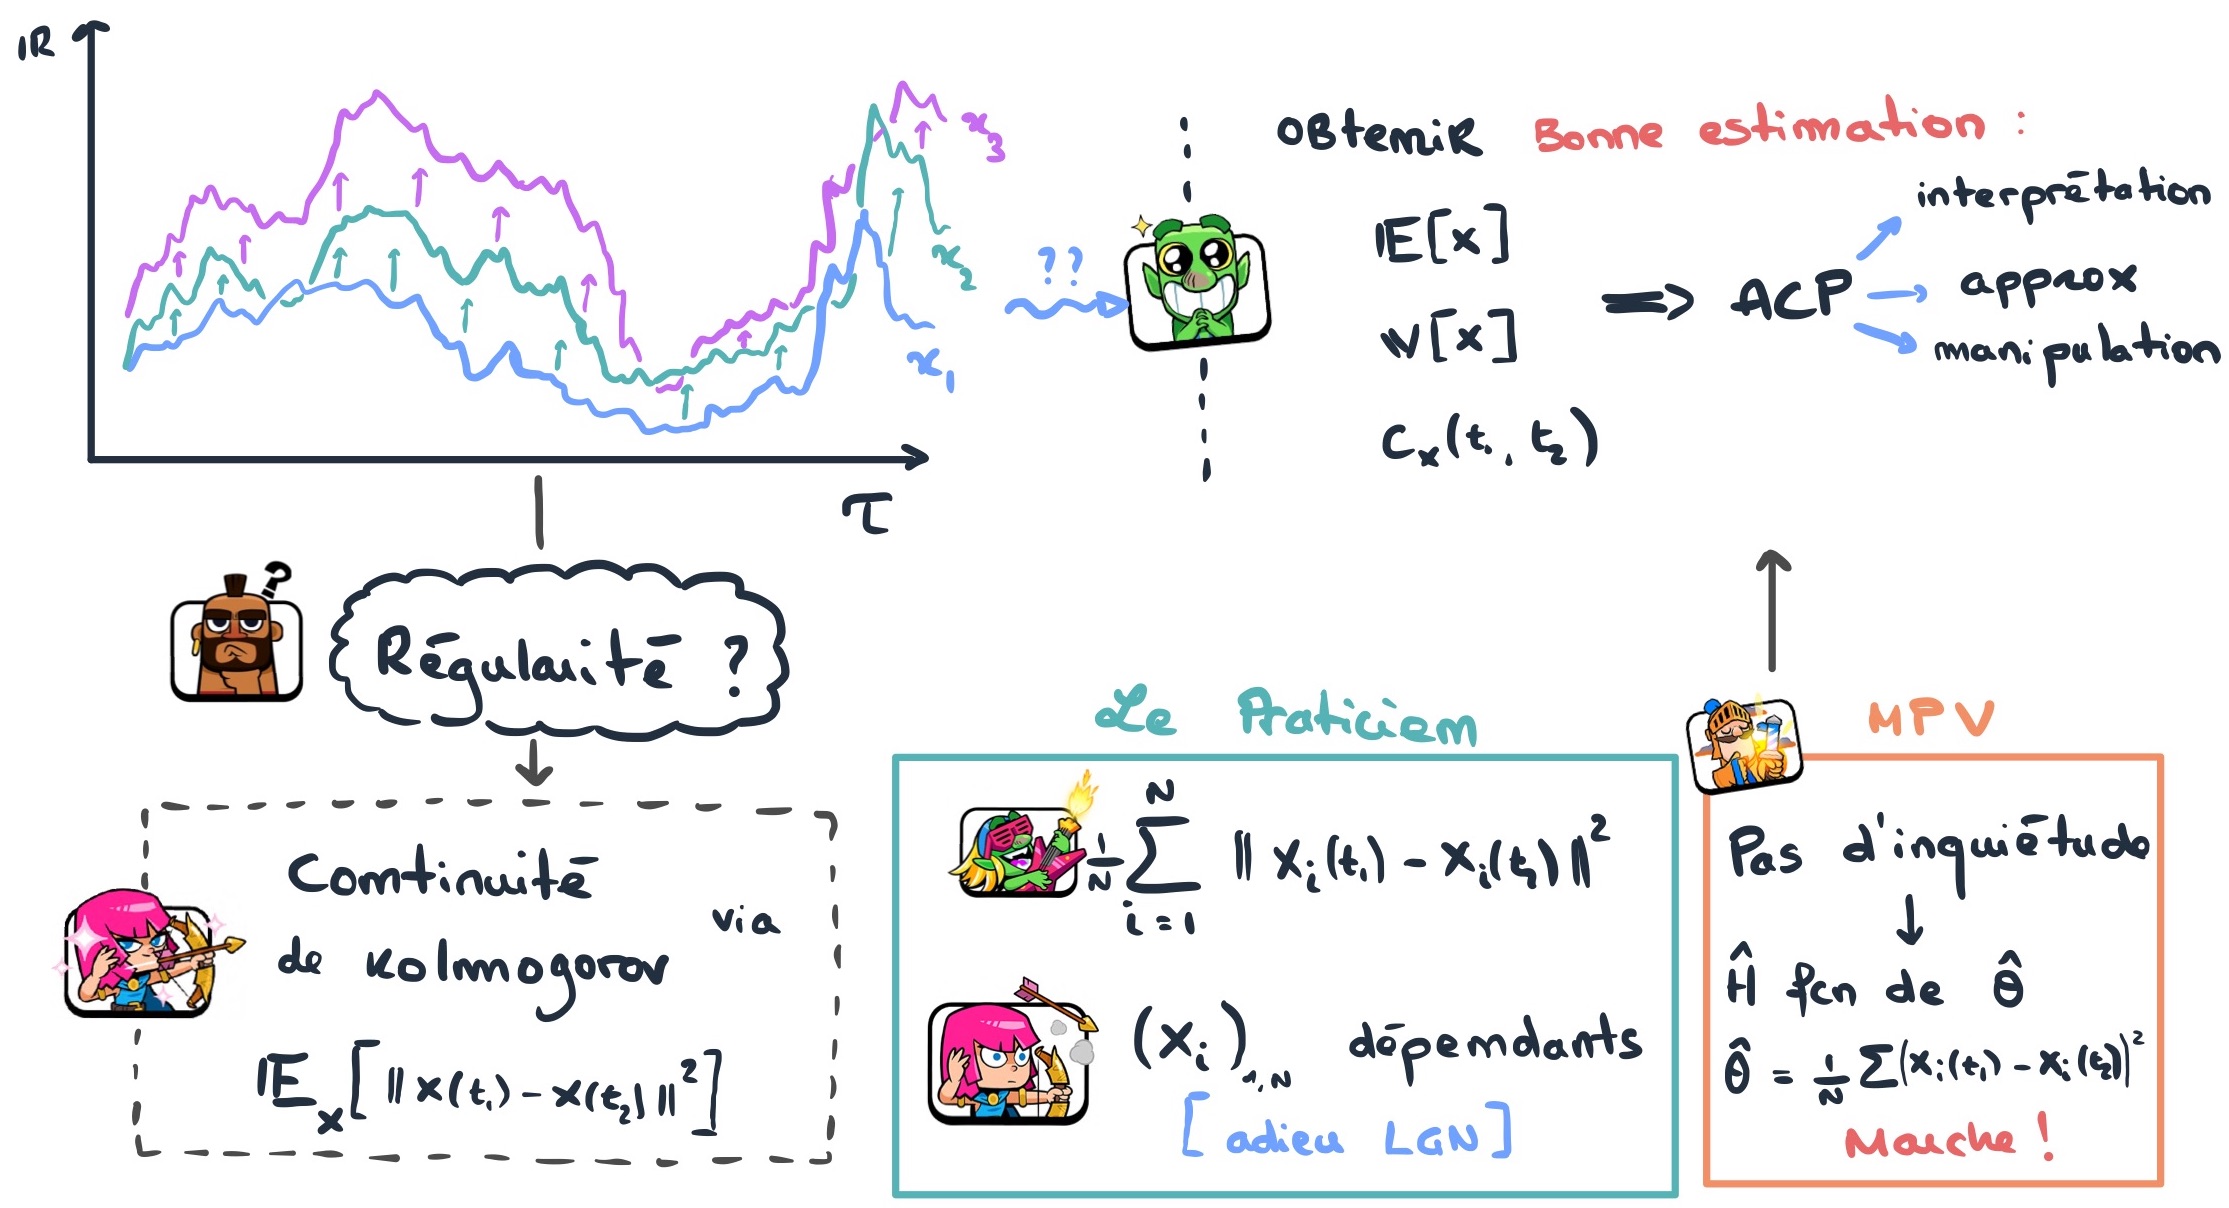 IR
x₃
x₂
x₁
τ
??
Obtenir Bonne estimation :
IE[x]
V[x]
Cₓ(t₁, t₂)
=> ACP
interprétation
approx
manipulation
?
Régularité ?
Continuité
de Kolmogorov
via
IEₓ[||x(t₁) - x(t₂)||²]
Le Praticien
1/N ∑_{i=1}^{N} || Xᵢ(t₁) - Xᵢ(t₂) ||²
(Xᵢ)₁,N dépendants
[adieu LGN]
MPV
Pas d'inquiétude
Ĥ fcn de θ̂
θ̂ = 1/N ∑(Xᵢ(t₁) - Xᵢ(t₂))²
Marche !